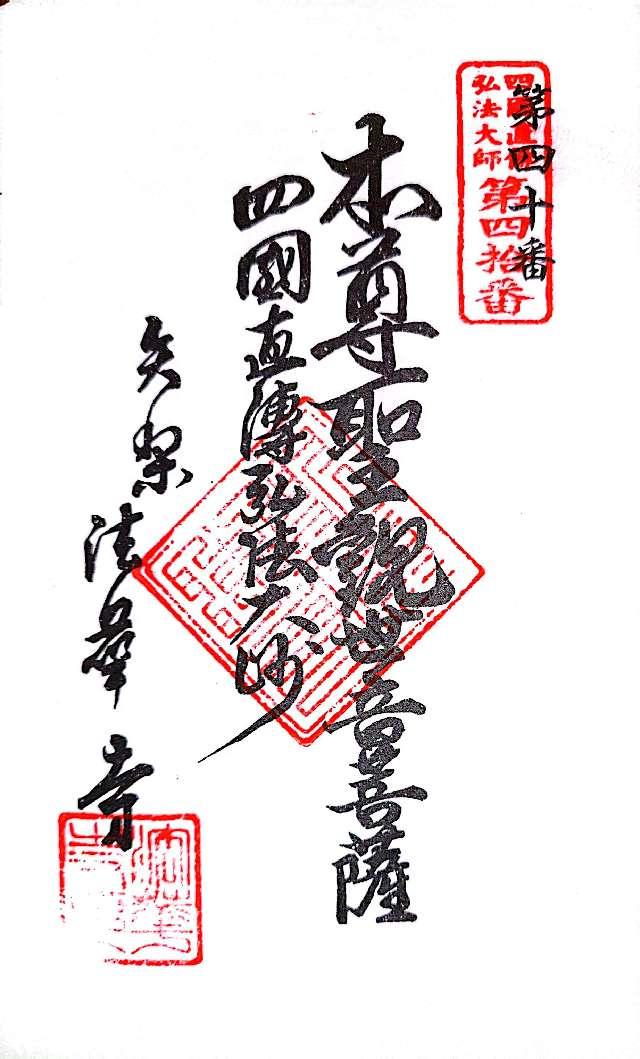 四國直傳
弘法大師
第四拾番
第四十番
本尊聖観世音菩薩
四國直傳弘法大師
矢梨法華寺